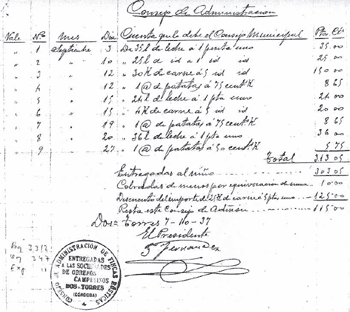 Consejo de Administracion
Vale Nº Mes Dia Cuenta que le debe el Consejo Municipal Pts Ctº
" 1 Septiembre 3 De 35 l de leche á 1 peseta uno 35.00
" 2 " 10 " 25 l de id á 1 id id 25.00
" 3 " 12 " 30 K de carne á 5 id id 150.00
" 4 " 12 " 1@ de patatas á 75 cent K 8.65
" 5 " 15 " 24 l de leche á 1 pta uno 24.00
" 6 " 15 " 4 K de carne á 5 id id 20.00
" 7 " 19 " 1@ de patatas á 75 cent K 8.65
" 8 " 20 " 36 l de leche á 1 pta uno 36.00
" 9 " 27 " 1@ de patatas á 50 cent K 5.75
Total 313.05
Entregadas al niño 303.05
Cobradas de menos por equivocacion de suma 10.00
Descuento del importe de 25 K de carne á 5 pts uno 125.00
Resta este Consejo de Admon 115.00
Dos-Torres 7-10-37
El Presidente
Fernandez
CONSEJO DE ADMINISTRACION DE FINCAS RÚSTICAS
ENTREGADAS
A LAS SOCIEDADES
DE OBREROS
CAMPESINOS
DOS-TORRES
(CORDOBA)